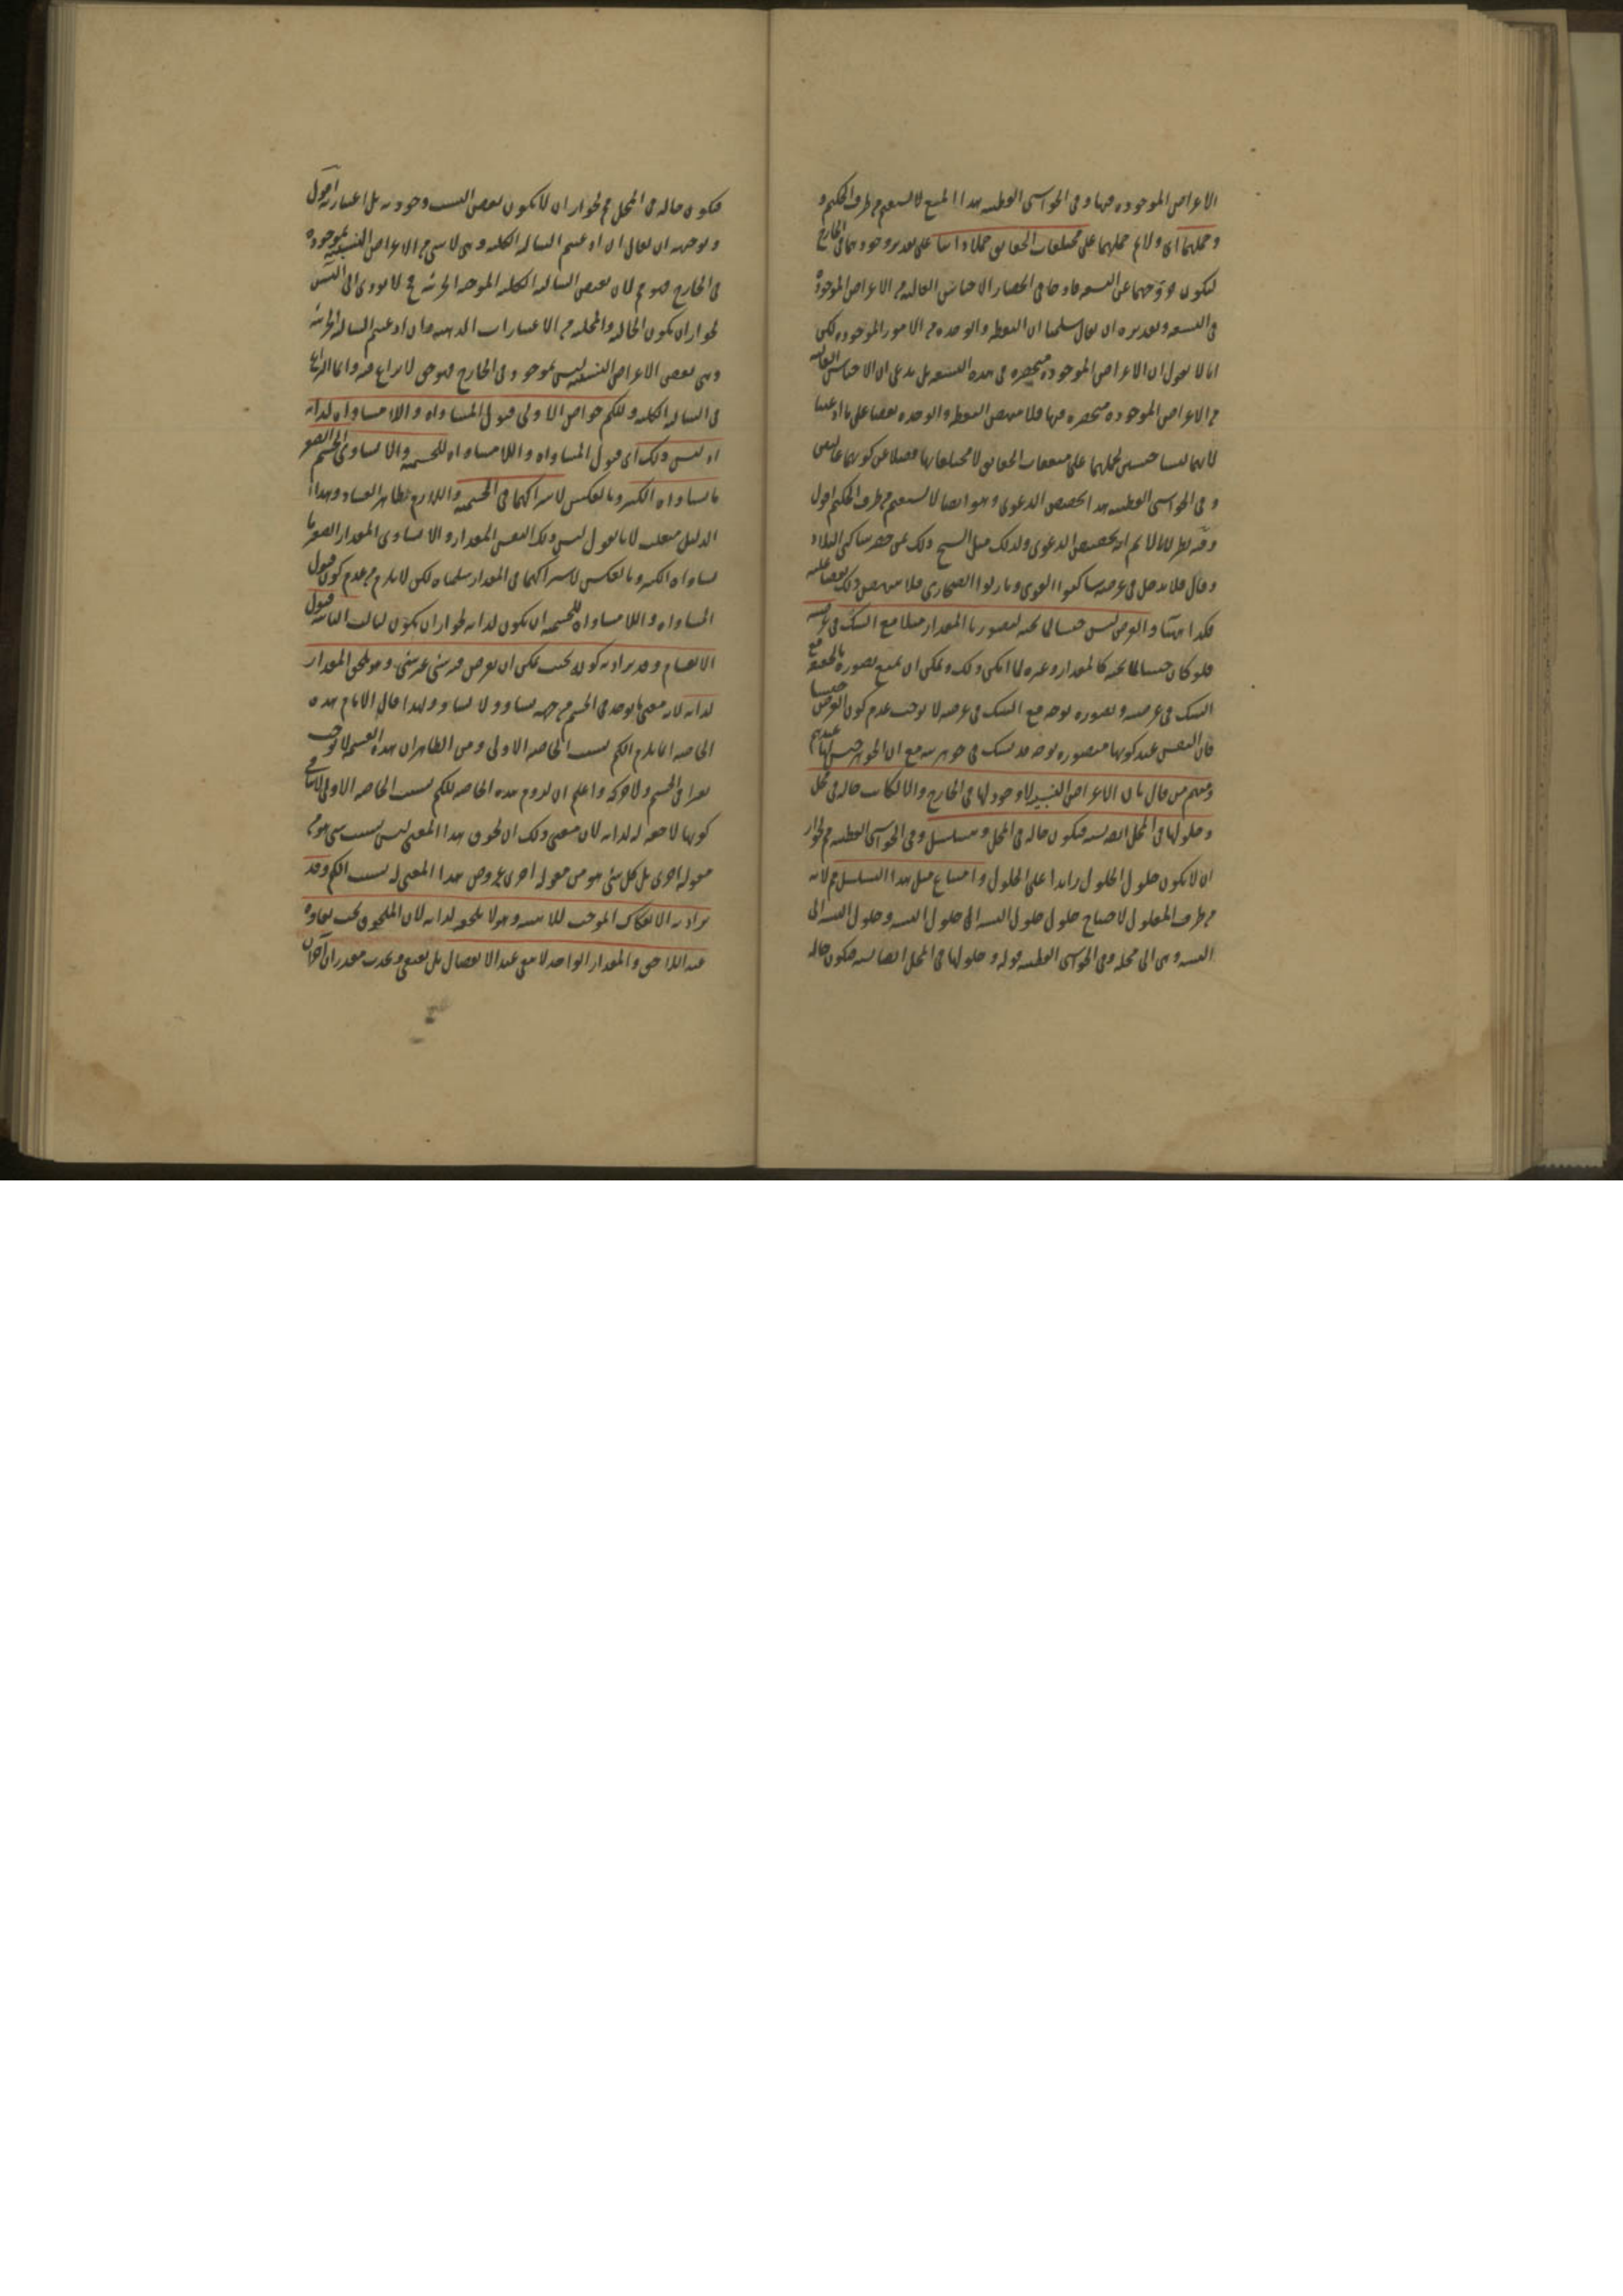 الاعراض الموجودة فيها وفى الحواشى القطبية هذا المنع لا يستقيم من طرف الحكيم و
وحملهما اى ولانم حملهما على مختلفات الحقايق حملا ذاتيا على تقدير وجودهما فى الخارج
ليكون خروجهما عن التسعة قادحا فى انحصار الاجناس العالية من الاعراض الموجودة
فى التسعة وتقديره ان يقال سلمنا ان النقطة والوحدة من الامور الموجودة لكن
انا لا نقول ان الاعراض الموجودة منحصرة فى هذه التسعة بل ندعى ان الاجناس العالية
من الاعراض الموجودة منحصرة فيها فلا ينتهض النقطة والوحدة نقضا على ما ادعينا
لانهما ليسا جنسين لحملهما على متفقات الحقايق لا مختلفاتها فضلا عن كونهما عاليين
وفى الحواشى القطبية هذا تخصيص الدعوى وهو ايضا لا يستقيم من طرف الحكيم اقول
وفيه نظر لانا لا نم انه تخصيص الدعوى ولذلك مثل الشيخ ذلك بمن حصر ساكنى البلاد
وقال فلا يدخل فى عرضه ساكنوا القرى ونازلوا الصحارى فلا ينتهض ذلك نقضا عليه
فكذا ههنا والعرض ليس جنسا لما تحته لتصورنا المقدار مثلا مع الشك فى عرضيته
فلو كان جنسا لما تحته كالمقدار وغيره لما امكن ذلك ويمكن ان يمنع تصوره بالحقيقة مع
الشك فى عرضيته وتصوره بوجه مع الشك فى عرضيته لا يوجب عدم كون العرض جنسا
فان النفس عند كونها متصورة بوجه قد يشك فى جوهريته مع ان الجوهر جنس لها عندهم
ومنهم من قال بان الاعراض النسبية لا وجود لها فى الخارج والا لكانت حالة فى محل
وحلولها فى المحل ايضا نسبة فيكون حالة فى المحل ويتسلسل وفى الحواشى القطبية م لجواز
ان لا يكون حلول الحلول زايدا على الحلول وامتناع مثل هذا التسلسل م لانه
من طرف المعلول لاحتياج حلول حلول النسبة الى حلول النسبة وحلول النسبة الى
النسبة وهى الى محله وفى الحواشى القطبية قوله وحلولها فى المحل ايضا نسبة فيكون حالة
فيكون حالة فى المحل م لجواز ان لا يكون بعض النسب وجودية بل اعتبارية اقول
وتوجيهه ان يقال ان ادعيتم السالبة الكلية وهى لا شئ من الاعراض النسبية بموجودة
فى الخارج فهو م لان نقيض السالبة الكلية الموجبة الجزئية وح لا يؤدى الى التس
لجواز ان يكون الحالية والمحلية من الاعتبارات الذهنية وان ادعيتم السالبة الجزئية
وهى بعض الاعراض النسبية ليس بموجود فى الخارج فهو حق لا نزاع فيه وانما النزاع
فى السالبة الكلية وللكم خواص الاولى قبول المساواة واللامساواة لذاته
اذ ليس ذلك اى قبول المساواة واللامساواة للجسمية والا لساوى الجسم الصغير
مساواة الكبير وبالعكس لاشتراكهما فى الجسمية واللازم ظاهر الفساد وهذا
الدليل منقلب لانا نقول ليس ذلك لنفس المقدار والا لساوى المقدار الصغير
مساواة الكبير وبالعكس لاشتراكهما فى المقدار سلمناه لكن لا يلزم من عدم كون قبول
المساواة واللامساواة للجسمية ان يكون لذاته لجواز ان يكون لثالث الثانية قبول
الانقسام وقد يراد به كونه بحيث يمكن ان يفرض فيه شئ غير شئ وهو يلحق المقدار
لذاته لانه معنى ما يوجد فى الجسم من جهة مساو ولا مساو ولهذا قال الامام هذه
الخاصة انما يلزم الكم بسبب الخاصة الاولى ومن الظاهر ان هذه القسمة لا توجب
تغيرا فى الجسم ولا حركة واعلم ان لزوم هذه الخاصة للكم بسبب الخاصة الاولى لا ينافى
كونها لاحقة له لذاته لان معنى ذلك ان لحوق هذا المعنى ليس بسبب شئ هو من
مقولة اخرى بل كل شئ هو من مقولة اخرى عروض هذا المعنى له بسبب الكم وقد
يراد به الانفكاك الموجب للاثنينية وهو لا يلحقه لذاته لان الملحوق يجب بقاؤه
عند اللاحق والمقدار الواحد لا يبقى عند الانفصال بل يفنى ويحدث مقداران آخران